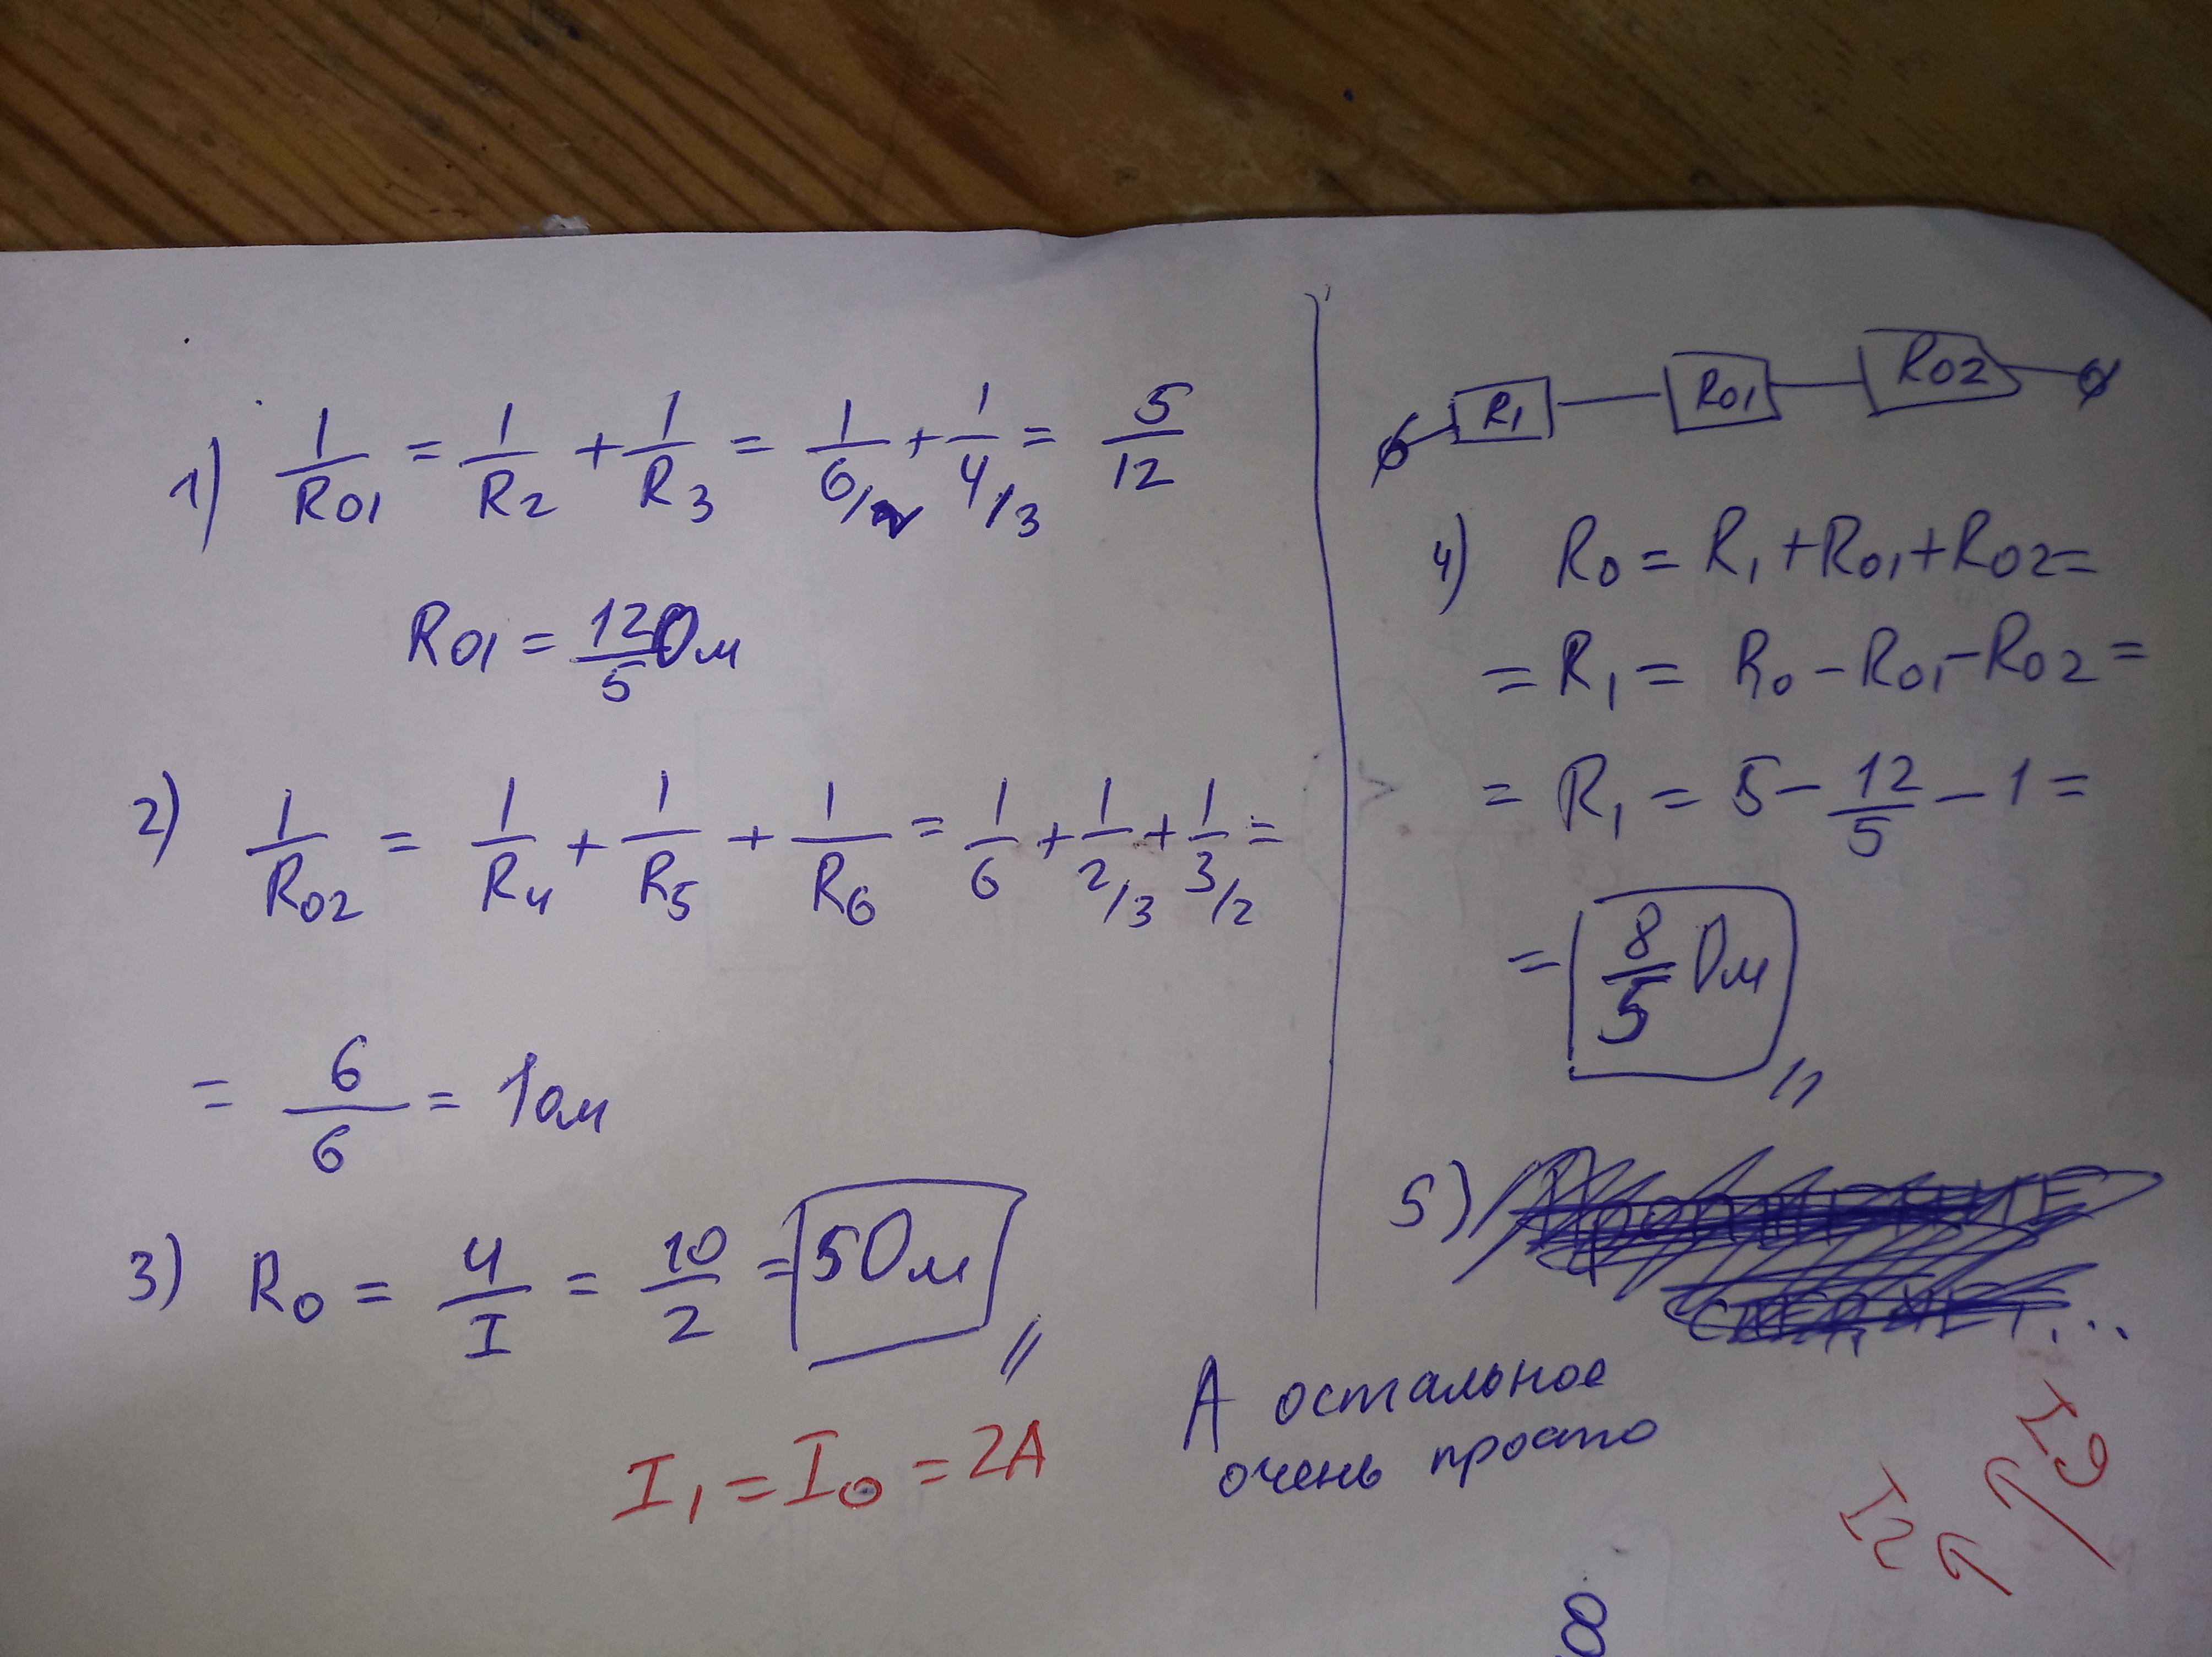 1) 1/R01 = 1/R2 + 1/R3 = 1/6/2 + 1/4/3 = 5/12
R01 = 12/5 Ом
2) 1/R02 = 1/R4 + 1/R5 + 1/R6 = 1/6 + 1/2/3 + 1/3/2 =
= 6/6 = 1 ом
3) R0 = U/I = 10/2 = 5 Ом
I1 = I0 = 2A
R1 R01 R02
4) R0 = R1 + R01 + R02 =
= R1 = R0 - R01 - R02 =
= R1 = 5 - 12/5 - 1 =
= 8/5 Ом
5)
А остальное
очень просто
8